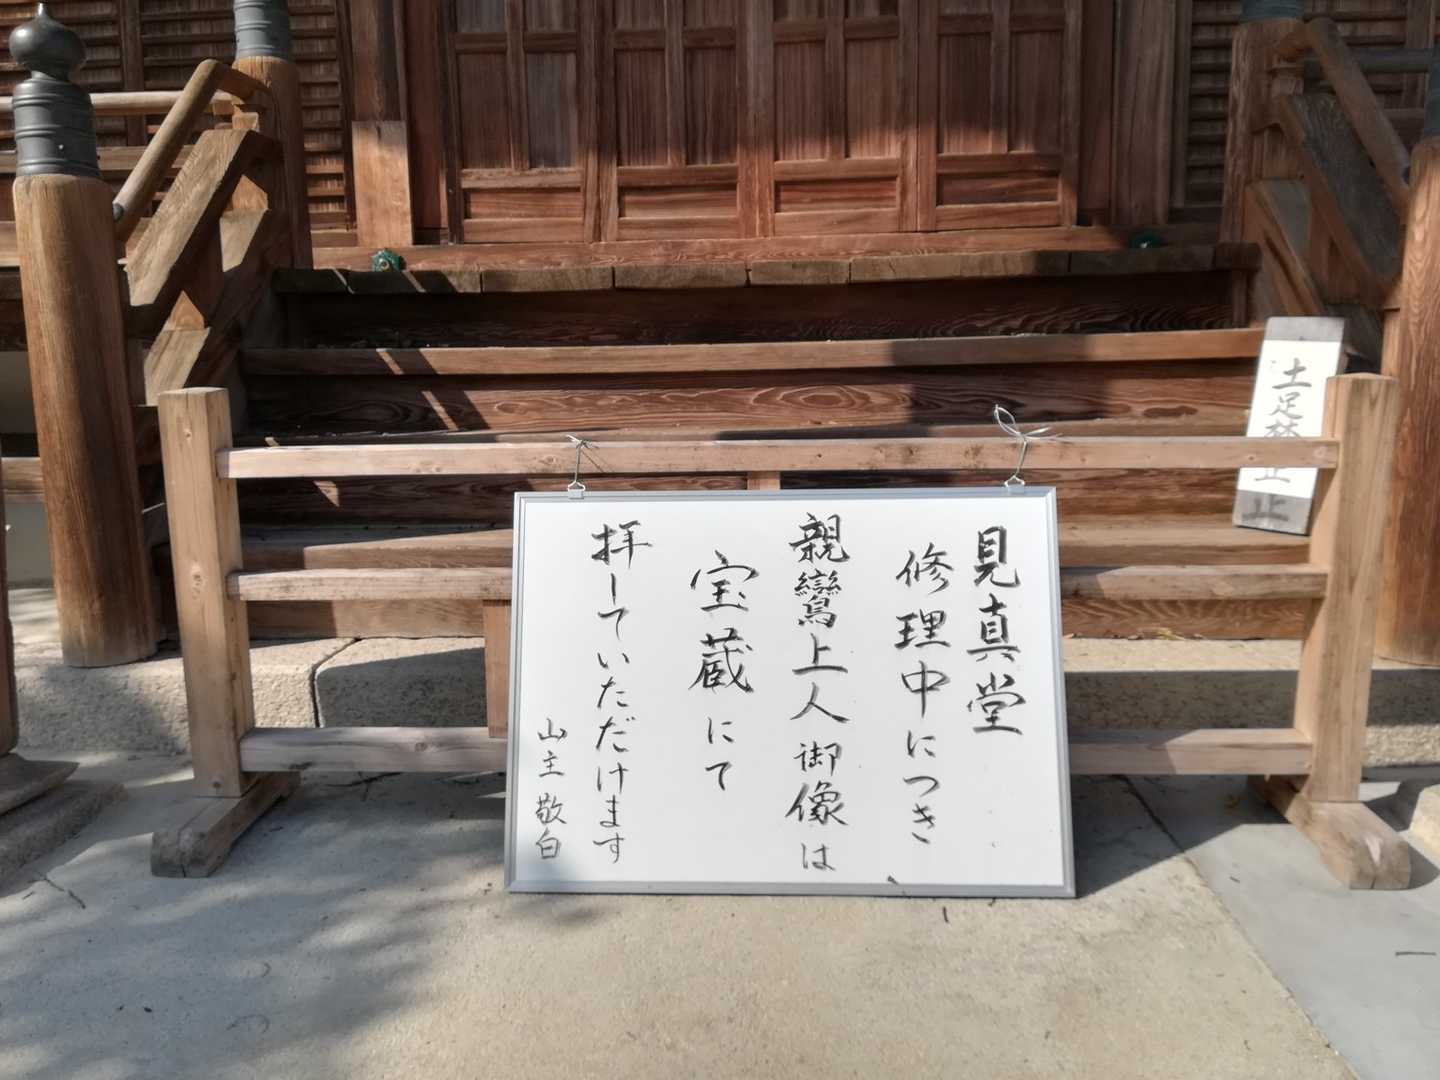 見真堂
修理中につき
親鸞上人御像は
宝蔵にて
拝していただけます
山主 敬白
土足禁止